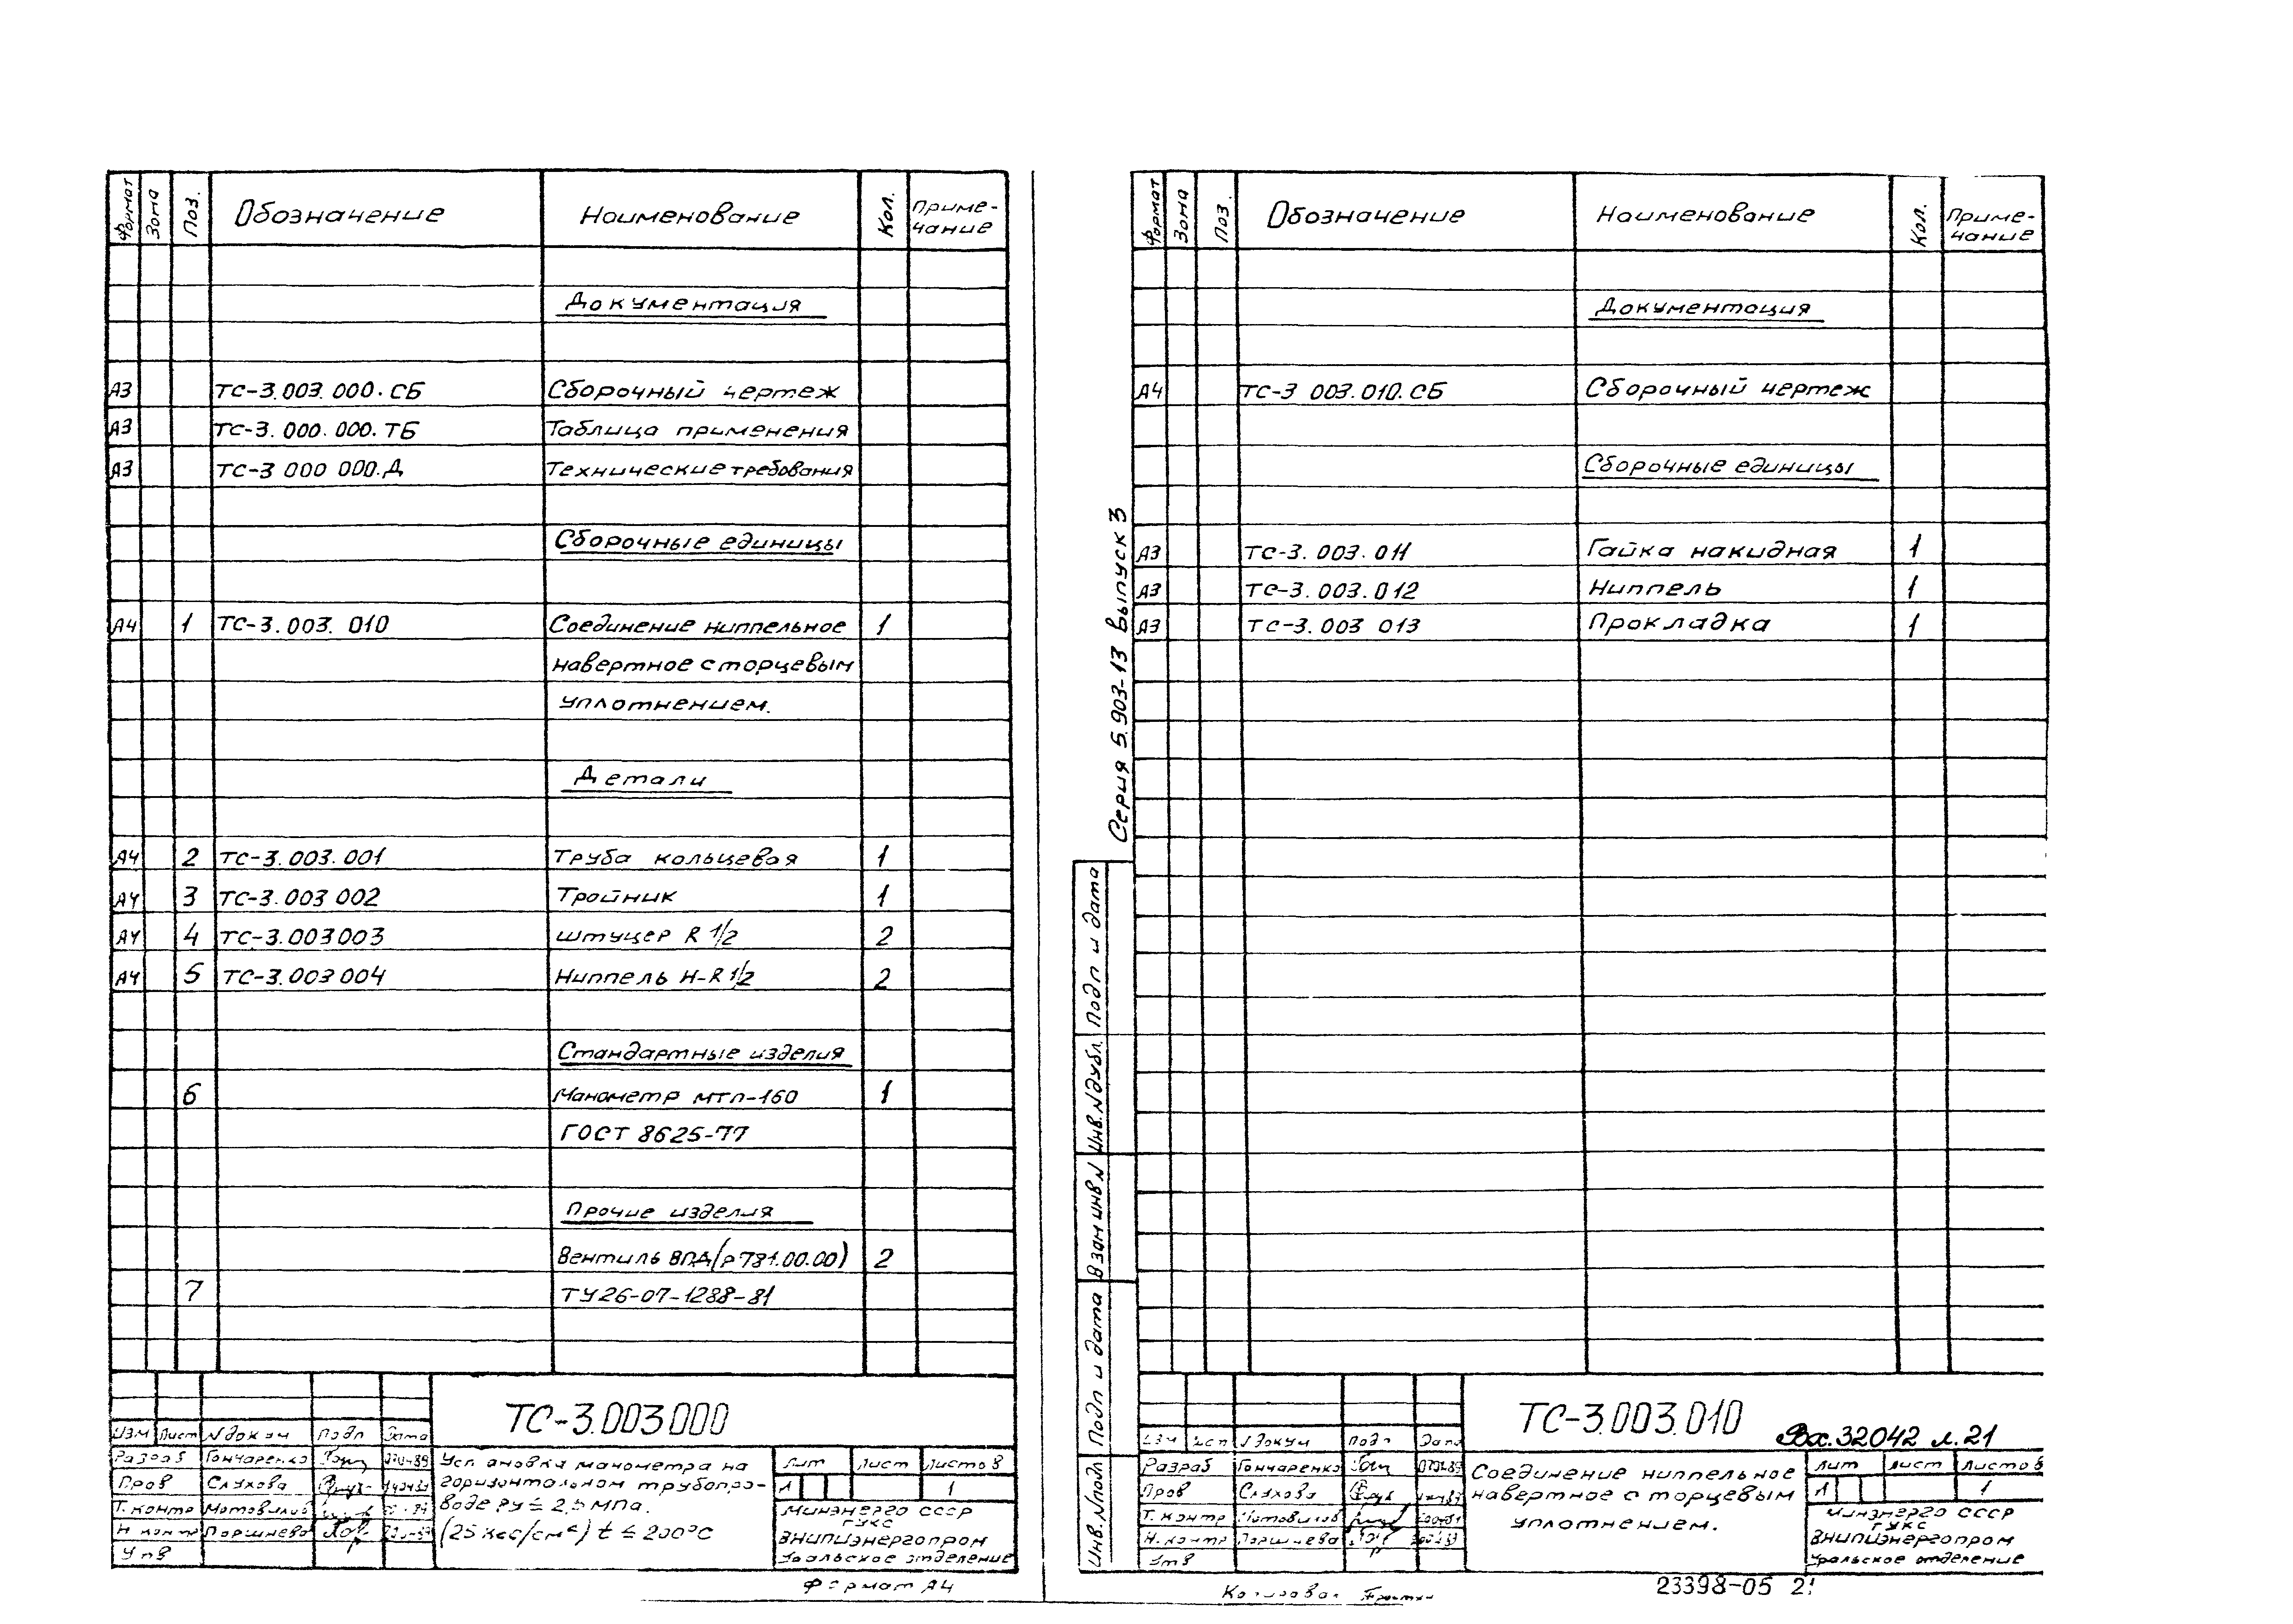 Формат Зона Поз. Обозначение Наименование Кол. Приме-
чание
Документация
А3 ТС-3.003.000.СБ Сборочный чертеж
А3 ТС-3.000.000.ТБ Таблица применения
А3 ТС-3 000 000.Д Технические требования
Сборочные единицы
А4 1 ТС-3.003.010 Соединение ниппельное 1
навертное с торцевым
уплотнением.
Детали
А4 2 ТС-3.003.001 Труба кольцевая 1
А4 3 ТС-3.003 002 Тройник 1
А4 4 ТС-3.003003 штуцер R 1/2 2
А4 5 ТС-3.003 004 Ниппель Н-R 1/2 2
Стандартные изделия
6 Манометр МТП-160 1
ГОСТ 8625-77
Прочие изделия
Вентиль ВПД(р781.00.00) 2
7 ТУ26-07-1288-81
ТС-3.003000
Изм Лист N докум Подп Дата
Разраб Гончаренко
Пров Слухова
Т. контр Мотовилов
Н контр Поршнева
Утв
Установка манометра на
горизонтальном трубопро-
воде Ру ≤ 2,5 МПа.
(25 кгс/см²) t ≤ 200°С
Лит Лист Листов
Л 1
Минэнерго СССР
ГУКС
ВНИПИэнергопром
Уральское отделение
Формат А4
Формат Зона Поз. Обозначение Наименование Кол. Приме-
чание
Документация
А4 ТС-3 003.010.СБ Сборочный чертеж
Сборочные единицы
А3 ТС-3.003.011 Гайка накидная 1
А3 ТС-3.003.012 Ниппель 1
А3 ТС-3.003 013 Прокладка 1
Серия 5.903-13 Выпуск 3
Подп и дата
Инв. N дубл.
Взам инв N
Подп и дата
Инв. N подл
ТС-3.003.010
Вх.32042 л.21
Изм Лист N докум Подп Дата
Разраб Гончаренко
Пров Слухова
Т. контр Мотовилов
Н. контр Поршнева
Утв
Соединение ниппельное
навертное с торцевым
уплотнением.
Лит Лист Листов
Л 1
Минэнерго СССР
ГУКС
ВНИПИэнергопром
Уральское отделение
Копировал
23398-05